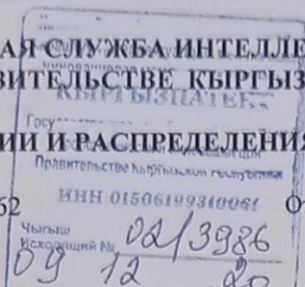 АЯ СЛУЖБА ИНТЕЛЛЕ
ВИТЕЛЬСТВЕ КЫРГЫЗ
КЫРГЫЗПАТЕНТ
Госу
ИИ И РАСПРЕДЕЛЕНИЯ
Правительстве Кыргызской республики
ИНН 01506199310061
62
Чыгыш
Исходящий № 02/3986
09 12 20